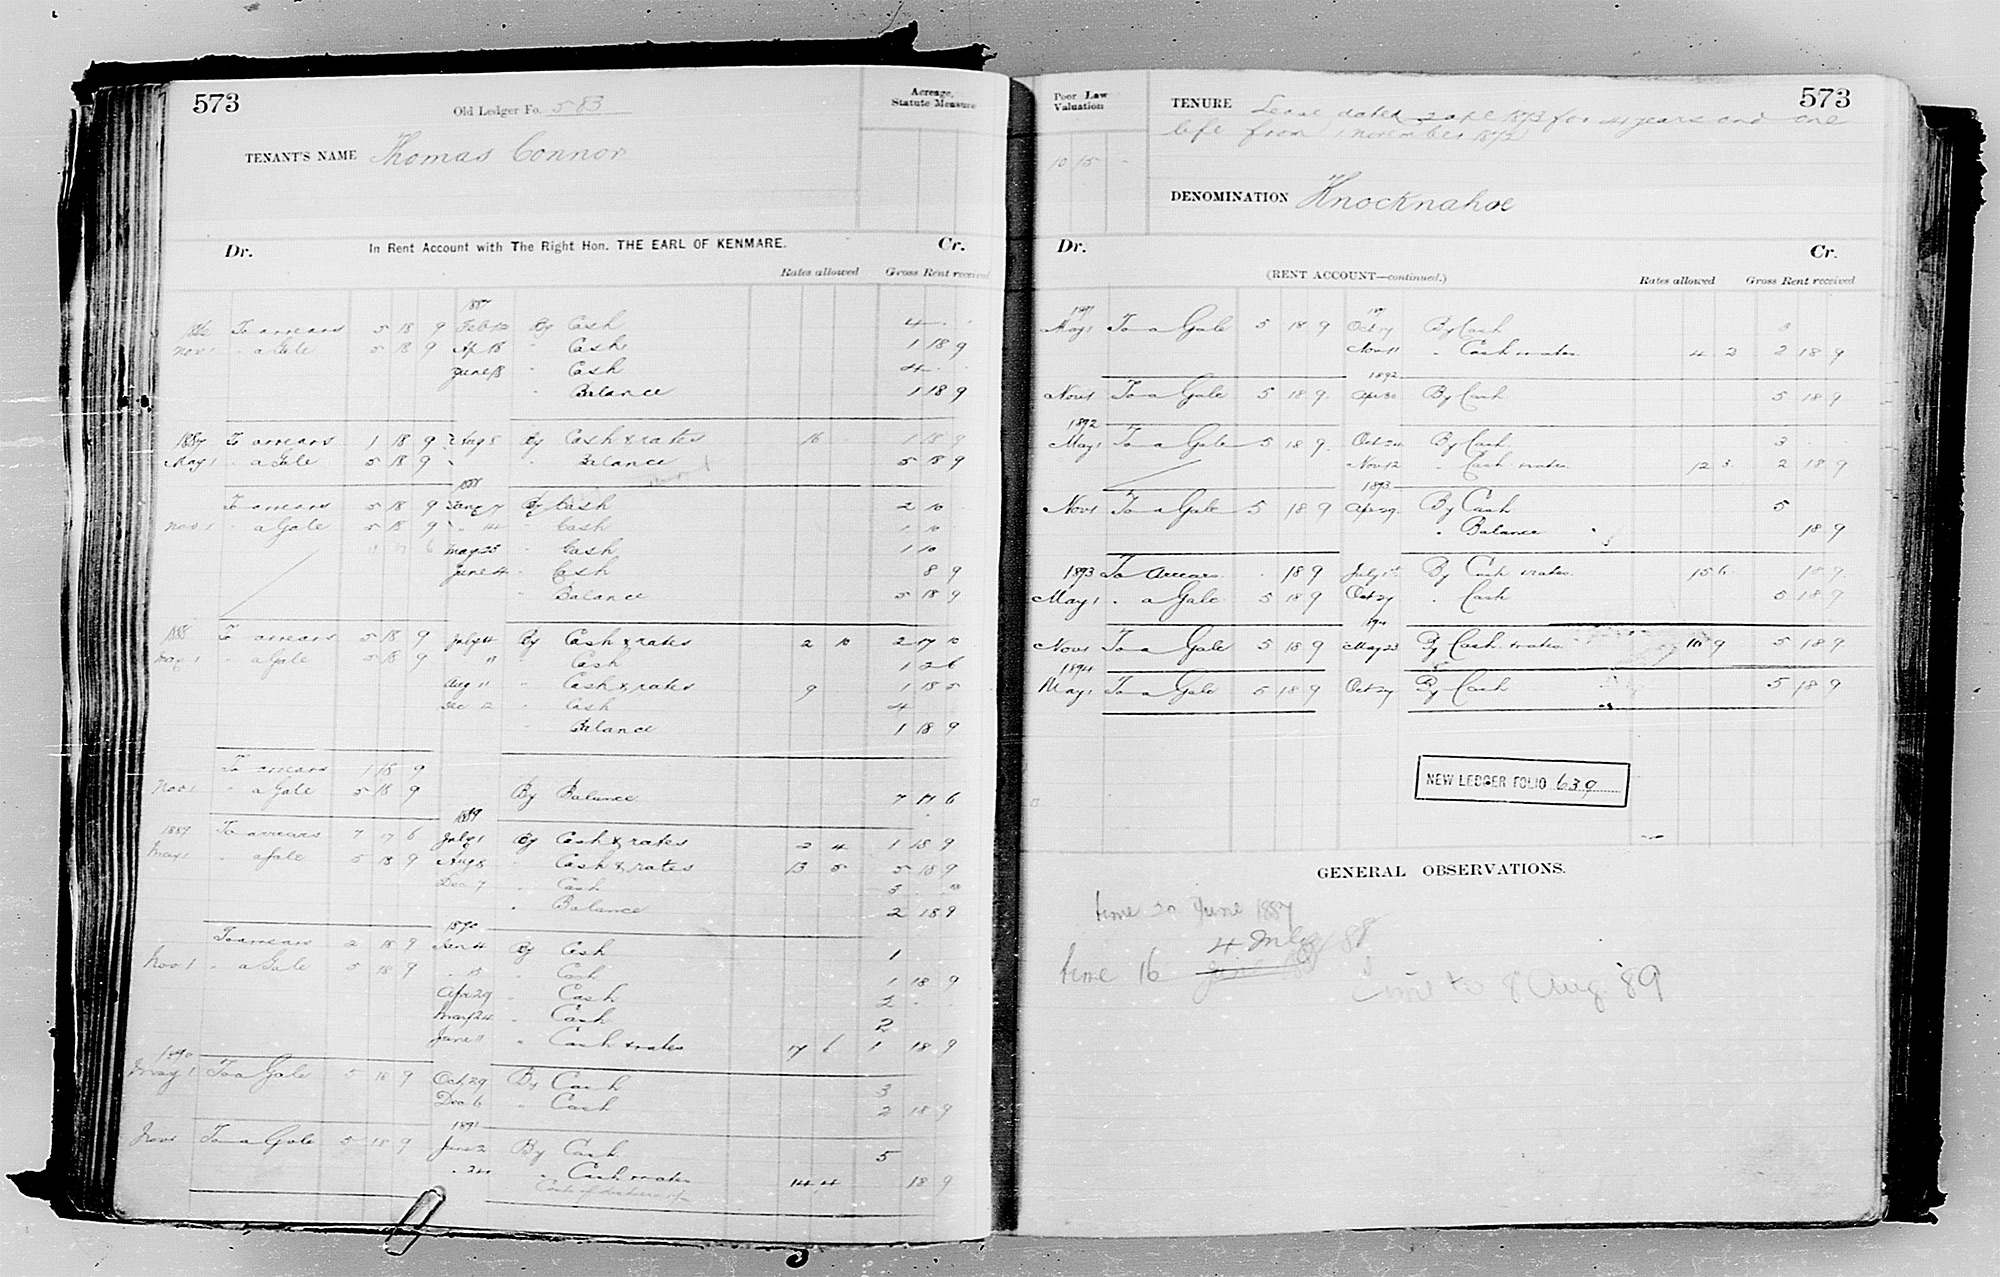 573
Old Ledger Fo. 583
Acreage, Statute Measure
TENANT'S NAME Thomas Connor
Dr. In Rent Account with The Right Hon. THE EARL OF KENMARE. Cr.
Rates allowed Gross Rent received
1887
To arrears 5 18 9 Feb 12 By Cash 4
Nov 1 " a Gale 5 18 9 Ap 18 " Cash 1 18 9
June 18 " Cash 4
Balance 1 18 9
1887 To arrears 1 18 9 Aug 8 By Cash & rates 16 1 18 9
May 1 " a Gale 5 18 9 " Balance 5 18 9
1888
To arrears 5 18 9 Jany 7 By Cash 2 10
Nov 1 " a Gale 5 18 9 " 14 Cash 1 10
11 17 6 May 25 " Cash 1 10
June 4 " Cash 8 9
" Balance 5 18 9
1888 To arrears 5 18 9 July 4 By Cash & rates 2 10 2 17 10
May 1 " a Gale 5 18 9 " " Cash 1 2 6
Aug 11 " Cash & rates 9 1 18 5
Dec 12 " Cash 4
" Balance 1 18 9
To arrears 1 18 9
Nov 1 " a Gale 5 18 9 By Balance 7 17 6
1889
1889 To arrears 7 17 6 July 1 By Cash & rates 2 4 1 18 9
May 1 " a Gale 5 18 9 Aug 8 " Cash & rates 13 5 5 18 9
Dec 7 " Cash 3
" Balance 2 18 9
1890
To arrears 2 18 9 Jan 4 By Cash 1
Nov 1 " a Gale 5 18 9 " 15 " Cash 1 18 9
Apr 29 " Cash 2
May 24 " Cash 2
June 11 " Cash & rates 17 6 1 18 9
1890
May 1 To a Gale 5 18 9 Oct 29 By Cash 3
Dec 6 " Cash 2 18 9
1891
Nov 1 To a Gale 5 18 9 June 2 By Cash 5
" 24 " Cash & rates 14 4 18 9
Poor Law Valuation
10 15 -
TENURE Lease dated 1873 for 41 years and one
life from 1 november 1872
573
DENOMINATION Knocknahoe
Dr. Cr.
(RENT ACCOUNT—continued.)
Rates allowed Gross Rent received
1891 1891
May 1 To a Gale 5 18 9 Oct 17 By Cash 3
Nov 11 " Cash & rates 4 2 2 18 9
1892
Nov 1 To a Gale 5 18 9 Apr 30 By Cash 5 18 9
1892
May 1 To a Gale 5 18 9 Oct 24 By Cash 3
Nov 12 " Cash & rates 12 3 2 18 9
1893
Nov 1 To a Gale 5 18 9 Apr 29 By Cash 5
" Balance 18 9
1893 To Arrears 18 9 July 1st By Cash & rates 15 6 18 9
May 1 " a Gale 5 18 9 Oct 27 " Cash 5 18 9
1894
Nov 1 To a Gale 5 18 9 May 23 By Cash & rates 9 5 18 9
1894
May 1 To a Gale 5 18 9 Oct 27 By Cash 5 18 9
NEW LEDGER FOLIO 639
GENERAL OBSERVATIONS.
time 20 June 1887
4 July 88
time 16
time to 8 Aug. '89